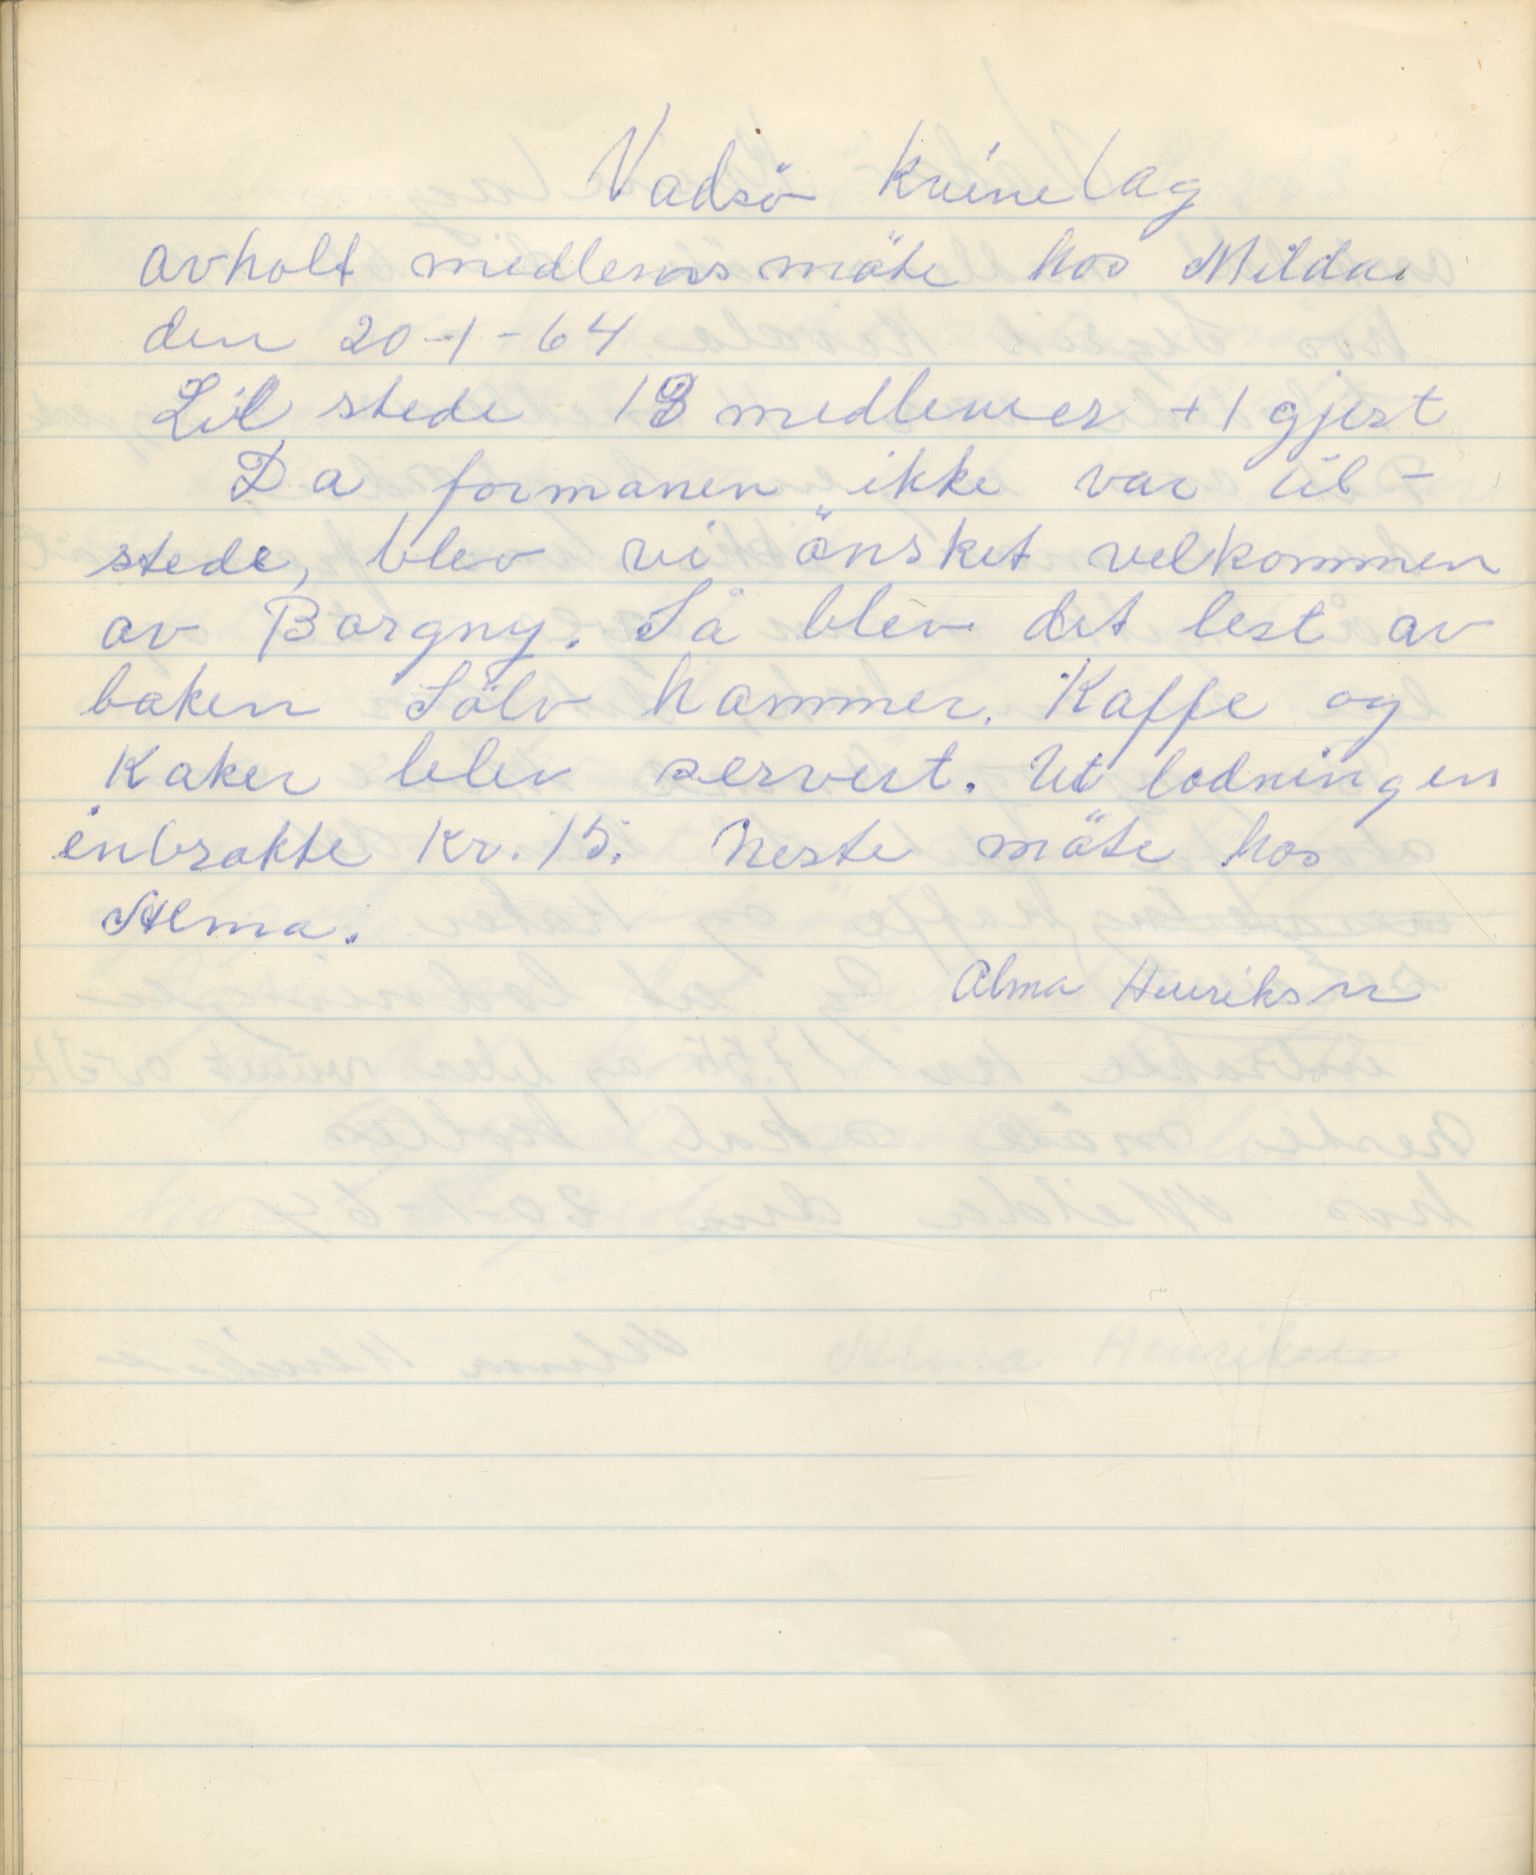 Vadsö Kvinelag
avholt medlemsmöte hos Milda.
den 20-1-64
Til stede 13 medlemer + 1 gjest
Da formanen ikke var til-
stede, blev vi önsket velkommen
av Borgny. Så blev det lest av
boken Sölv hammer. Kaffe og
Kaker blev servert. Ut lodningen
inbrakte Kr. 15. Neste möte hos
Alma.
Alma Henriksen